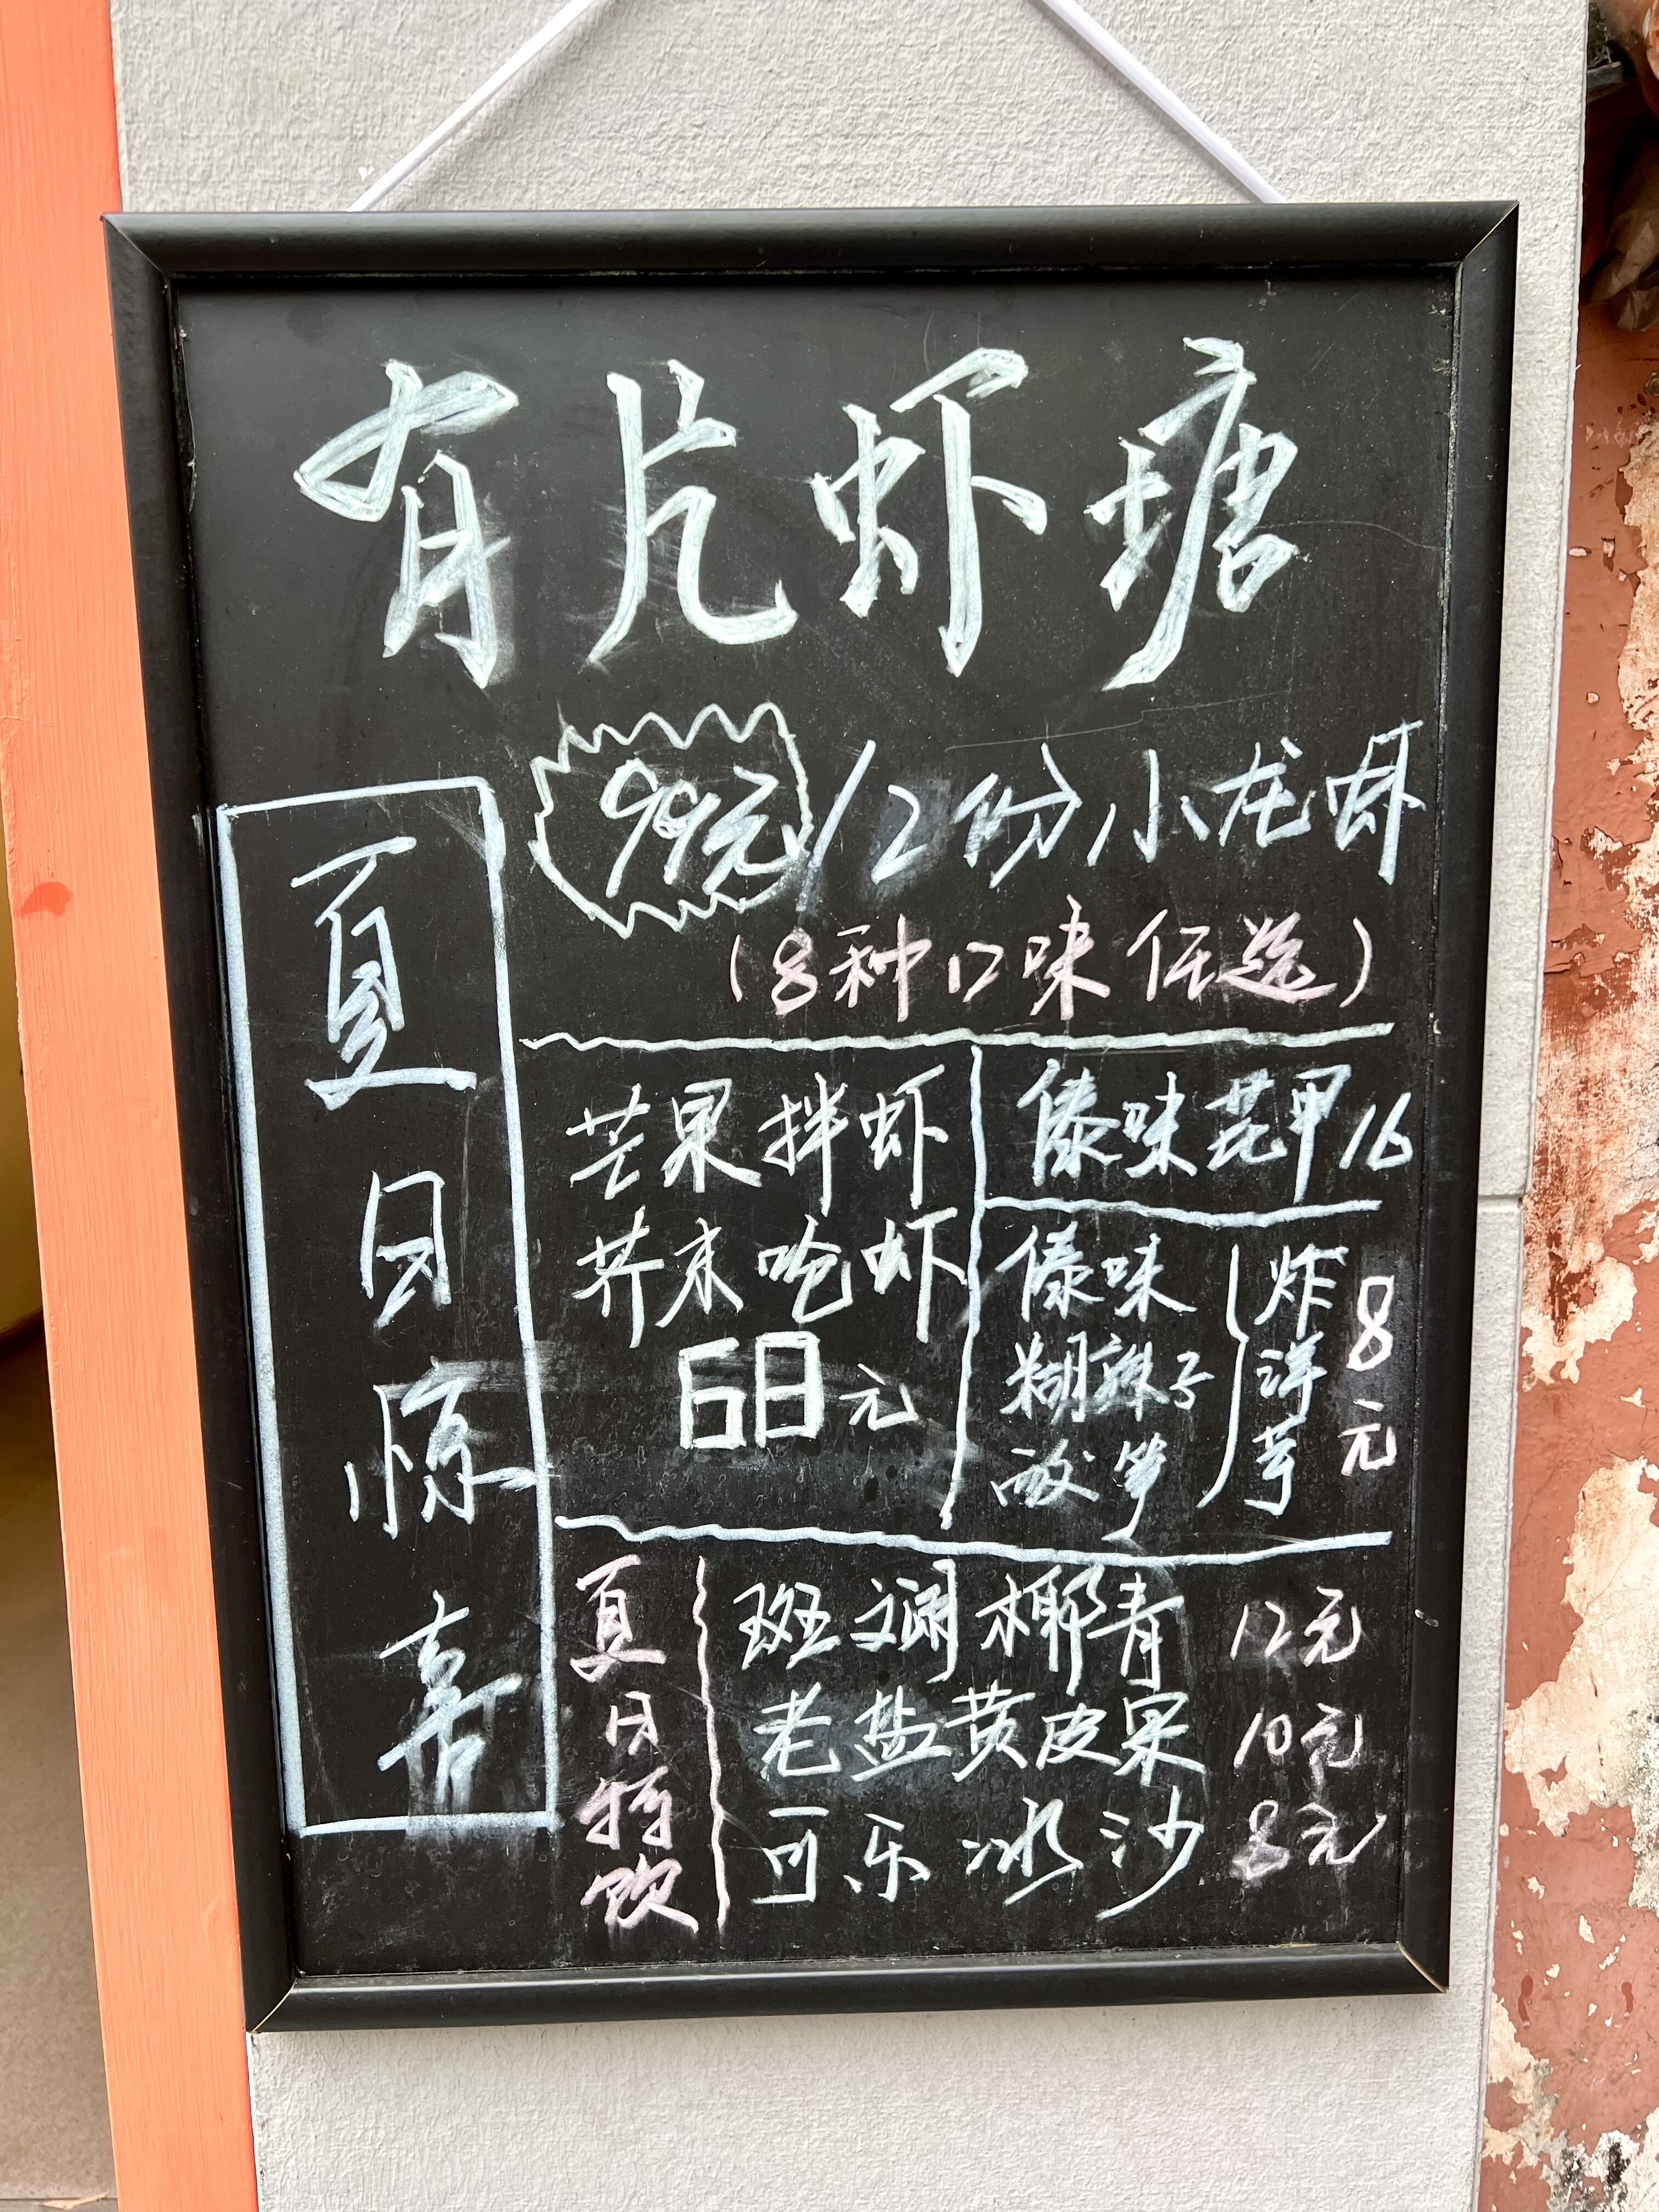 有片虾塘
夏日惊喜
99元/2份小龙虾
(8种口味任选)
芒果拌虾
芥末呛虾
68元
傣味花甲16
傣味
糊辣子
酸笋
炸洋芋
8元
夏日特饮
斑斓椰青 12元
老盐黄皮果 10元
可乐冰沙 8元